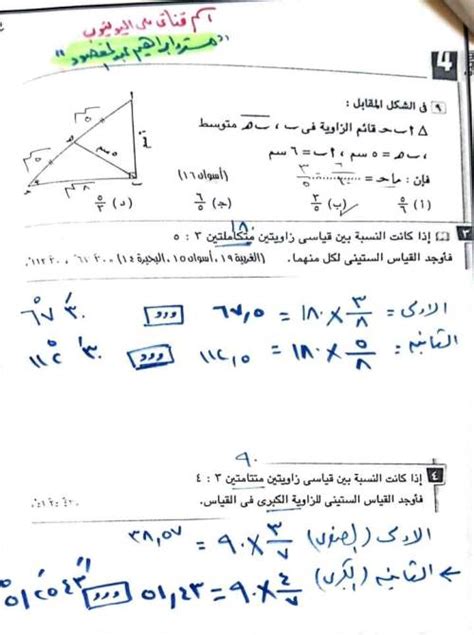 اسم قناتي على اليوتيوب
"مستر ابراهيم عبد المقصود"
4
٩ في الشكل المقابل :
Δ ا ب حـ قائم الزاوية في ب ، ب هـ متوسط
، ب هـ = ٥ سم ، ا ب = ٦ سم
فإن : ما حـ = ٦/١٠ ٣/٥ (أسوان ١٦)
(أ) ٥/٦ (ب) ٣/٥ (جـ) ٦/٥ (د) ٥/٣
٥ ٥ ٥ سم ٦ ٨
١٨٠
٣ إذا كانت النسبة بين قياسى زاويتين متكاملتين ٣ : ٥
فأوجد القياس الستينى لكل منهما. (الغربية ١٩، أسوان ١٥، البحيرة ١٤)
الاولى = ٣/٨ × ١٨٠ = ٦٧,٥ ٣٠َ ٦٧°
الثانيه = ٥/٨ × ١٨٠ = ١١٢,٥ ٣٠َ ١١٢°
٩٠
٤ إذا كانت النسبة بين قياسى زاويتين متتامتين ٣ : ٤
فأوجد القياس الستينى للزاوية الكبرى فى القياس.
الاولى (الصغرى) ٣/٧ × ٩٠ = ٣٨,٥٧
← الثانيه (الكبرى) ٤/٧ × ٩٠ = ٥١,٤٣ ٤٣ً ٢٥َ ٥١°